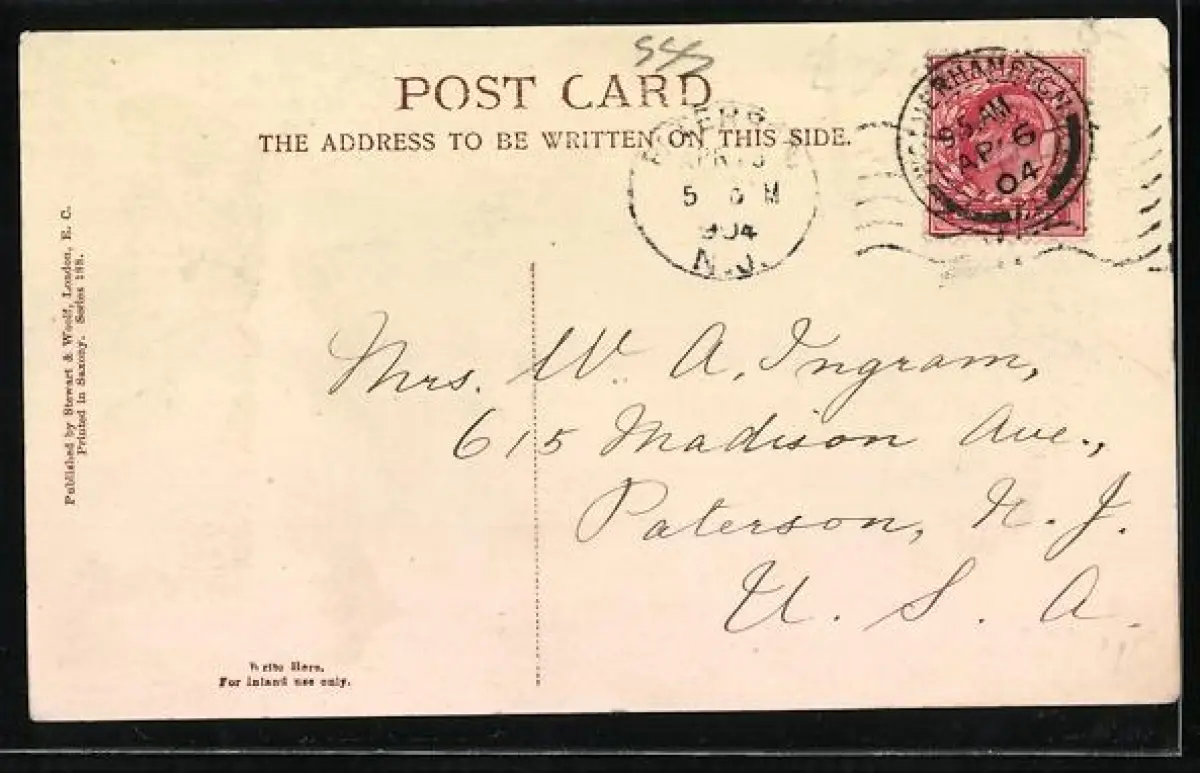 54
POST CARD
THE ADDRESS TO BE WRITTEN ON THIS SIDE.
5 M
904
N.J.
AM
AP 6
04
Published by Stewart & Woolf, London, E. C.
Printed in Saxony. Series 188.
Mrs. W. A. Ingram,
615 Madison Ave.,
Paterson, N. J.
U. S. A.
Write Here.
For inland use only.